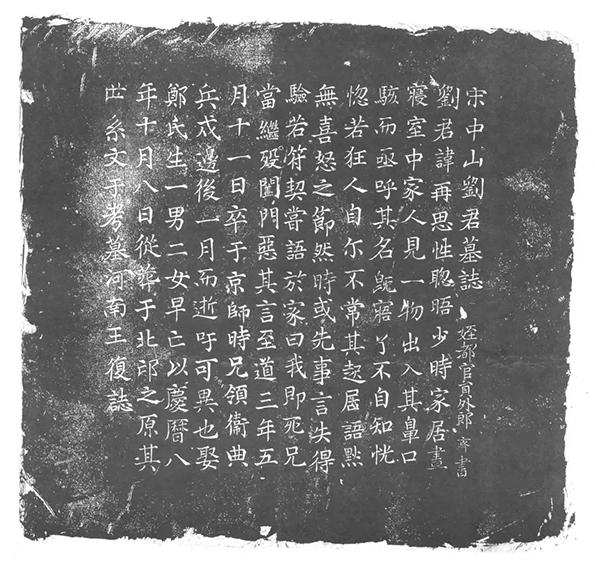 宋中山劉君墓誌 姪都官員外郎 書
劉君諱再思性聦晤少時家居晝
寢室中家人見一物出入其鼻口
駭而亟呼其名旣寤了不自知恍
惚若狂人自尓不常其起居語黙
無喜怒之節然時或先事言失得
驗若符契嘗語於家曰我即死兄
當繼殁闔門惡其言至道三年五
月十一日卒于京師時兄領衛典
兵戍邊後一月而逝吁可異也娶
鄭氏生一男二女早亡以慶曆八
年十月八日從葬于北邙之原其
世系文于考墓河南王復誌